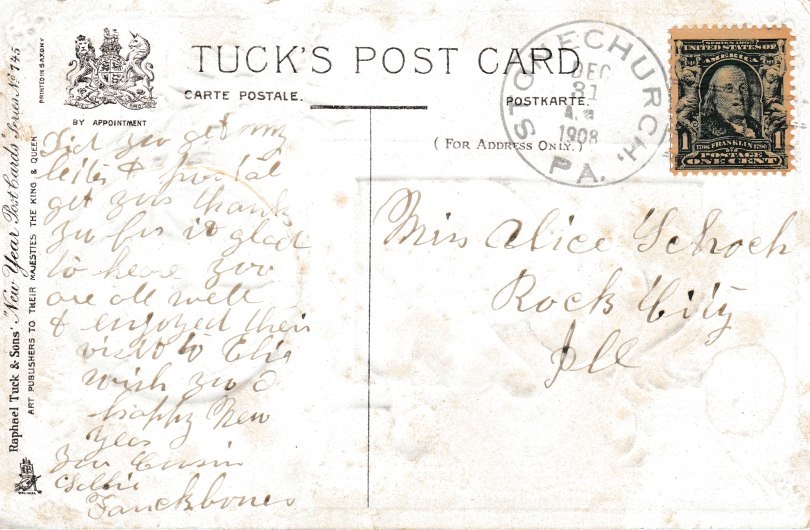 TUCK'S POST CARD
CARTE POSTALE.
POSTKARTE.
BY APPOINTMENT
( FOR ADDRESS ONLY. )
PRINTED IN SAXONY
Raphael Tuck & Sons' "New Year" Post Cards Series No 145
ART PUBLISHERS TO THEIR MAJESTIES THE KING & QUEEN
STONECHURCH,
DEC
31
1908
PA.
SERIES 1902
UNITED STATES OF
AMERICA
1 1
1706 FRANKLIN 1790
POSTAGE
ONE CENT
Did you get my
letter & postal
get yours thanks
you for it glad
to hear you
are all well
& enjoyed their
visit to
wish you a
happy New
Year
your Cousin
Miss Alice Schoch
Rock City
Ill